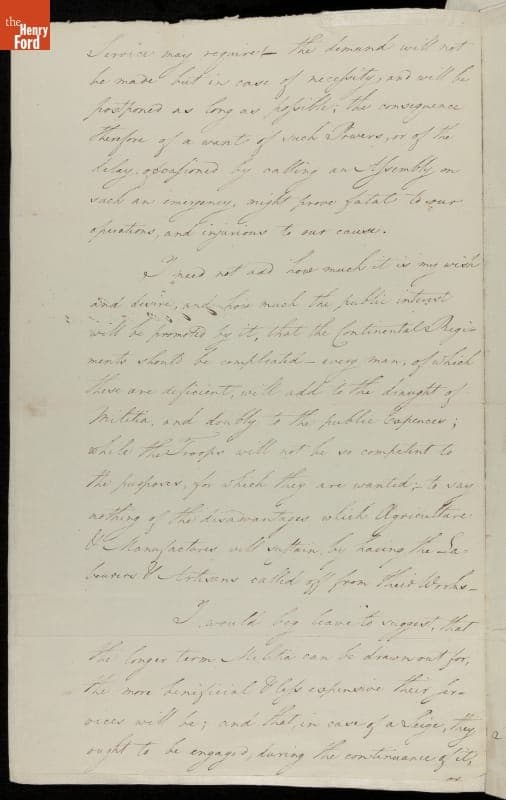 the
Henry
Ford
Service may require — the demand will not
be made but in case of necessity, and will be
postponed as long as possible; the consequence
therefore of a want of such Powers, or of the
delay, occasioned by calling an Assembly on
such an emergency, might prove fatal to our
operations, and injurious to our cause.
I need not add how much it is my wish
and desire, and how much the public interest
will be promoted by it, that the Continental Regi-
ments should be compleated — every man, of which
these are deficient, will add to the draught of
Militia, and doubly to the public Expences;
while the Troops will not be so competent to
the purposes, for which they are wanted; to say
nothing of the disadvantages which Agriculture
& Manufactures will sustain, by having the La-
bourers & Artisans called off from their Works —
I would beg leave to suggest, that
the longer term Militia can be drawn out for,
the more beneficial & less expensive their ser-
vices will be; and that, in case of a Seige, they
ought to be engaged, during the continuance of it,
or
2